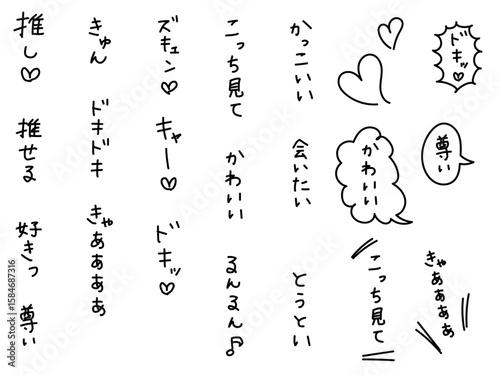 ドキッ♡
尊い
きゃあああぁ
かわいい
こっち見て
かっこいい
会いたい
とうとい
こっち見て
かわいい
るんるん♪
ズキュン♡
キャー♡
ドキッ♡
きゅん
ドキドキ
きゃあああぁ
推し♡
推せる
好きっ 尊い
Adobe Stock | #1584687316